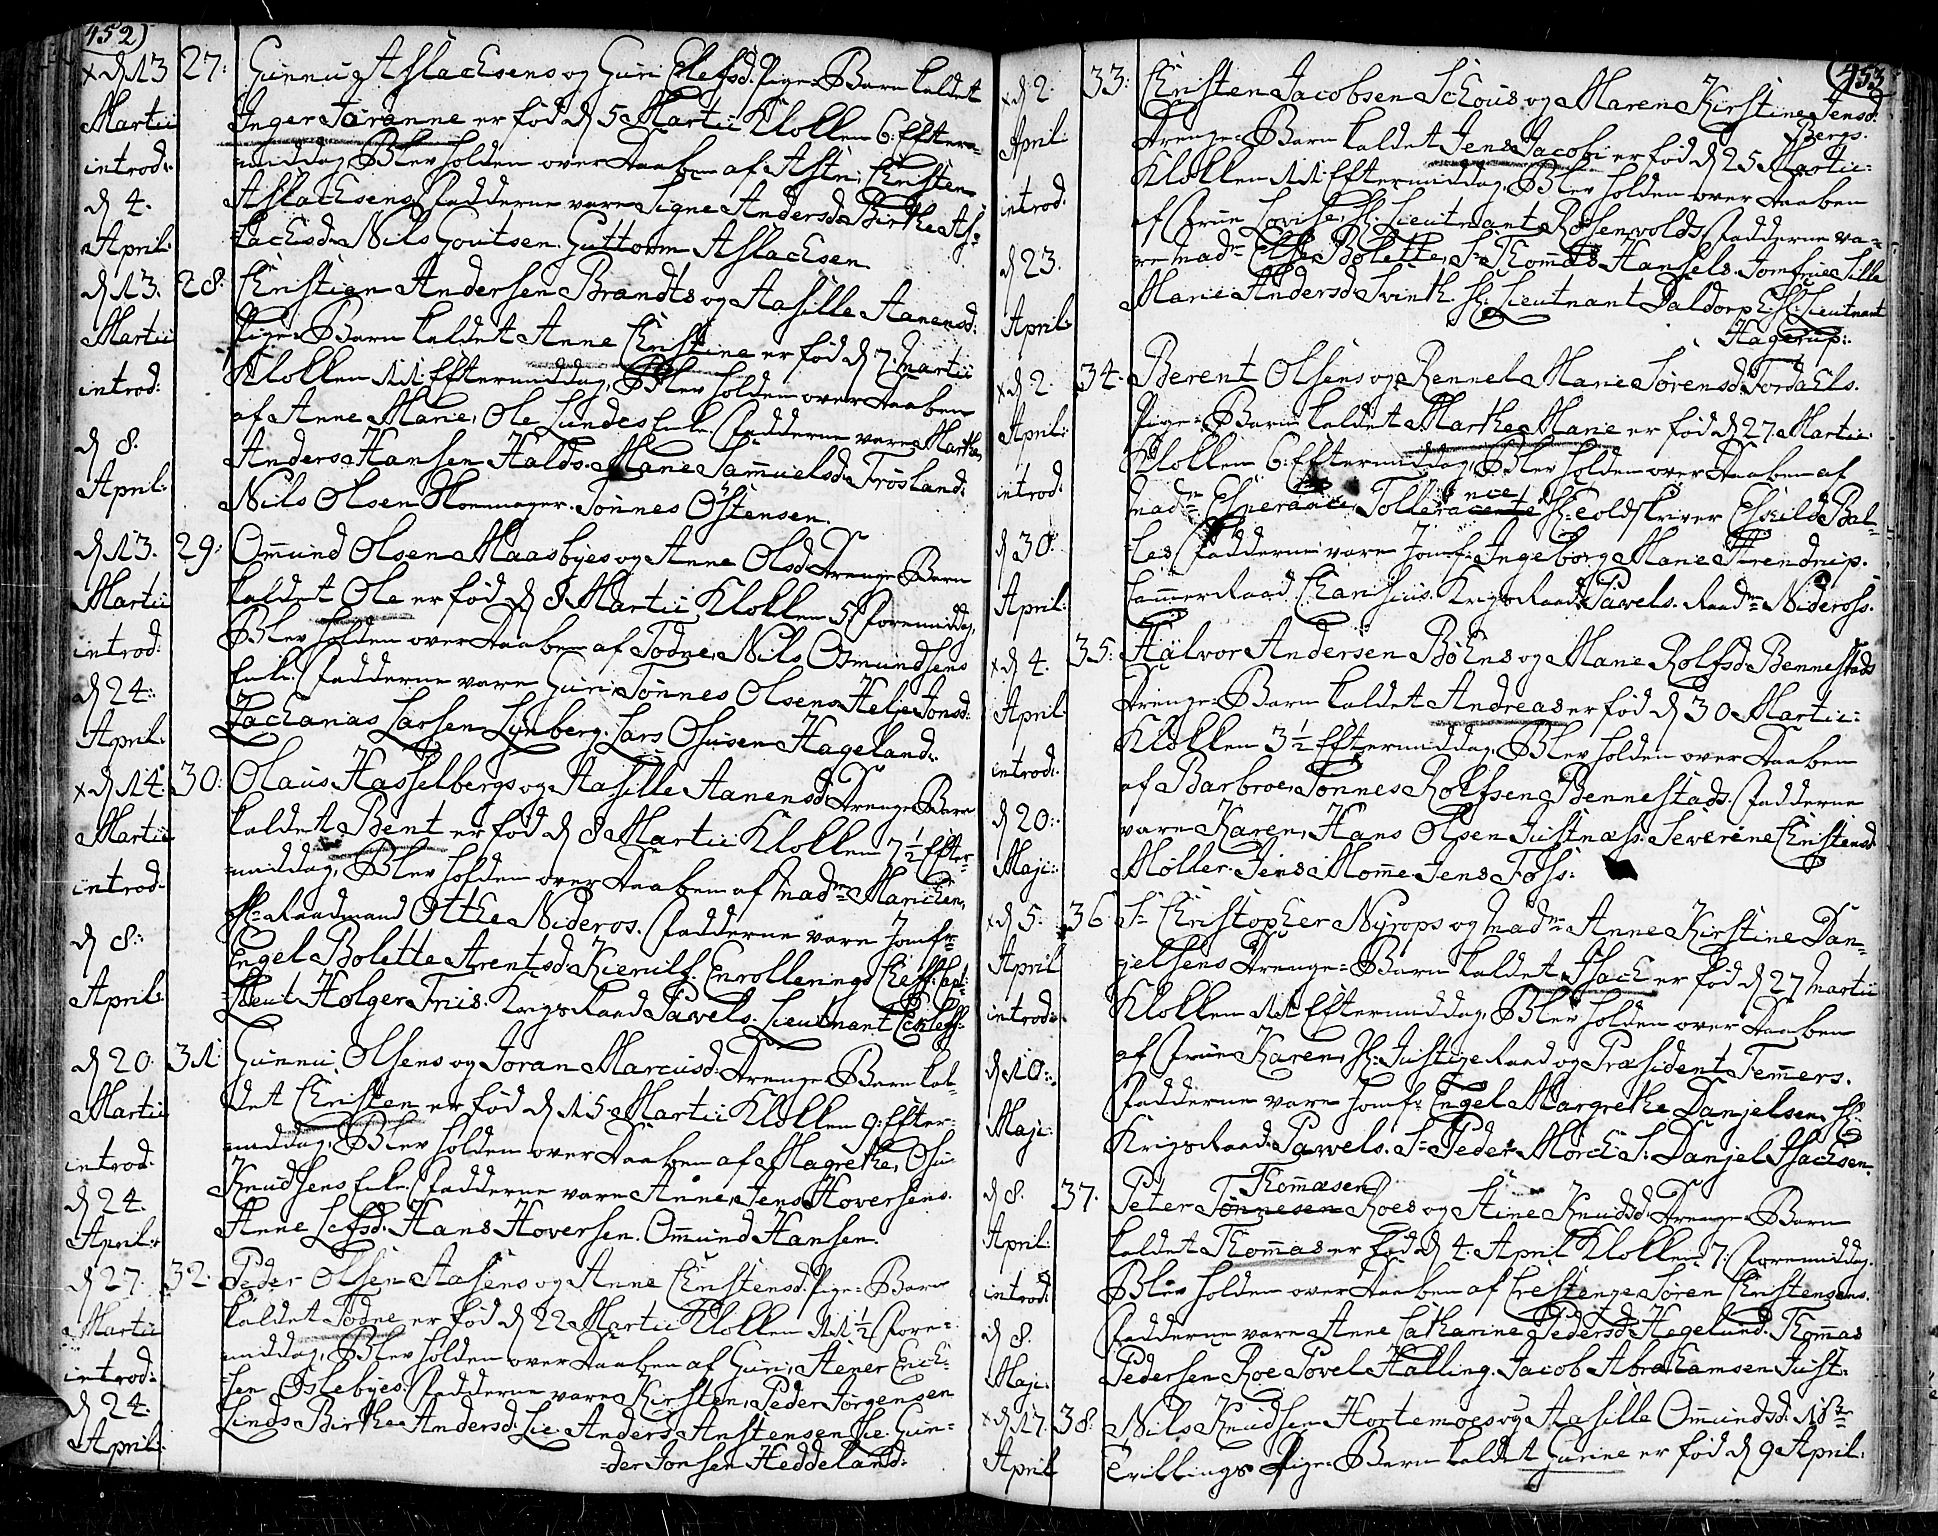 452)
x d 13 Martii introd: d 4. April:
27: Gunnug Aslachsens og Guri Elefsd: Pige-Barn kaldet
Inger Joranne er fød d 5 Martii Klokken 6: Efter-
middag, Blev holden over Daaben af Astri, Christen
Aslachsens, Fadderne vare Signe Andersd: Birthe As-
lachsd: Nils Goutsen. Guttorm Aslachsen.
d 13. Martii introd: d 8. April:
28: Christian Andersen Brandts og Aasille Aanensd:
Pige-Barn kaldet Anne Christine er fød d 7. Martii
Klokken 11: Eftermiddag, Blev holden over Daaben
af Anne Marie, Ole Lundes Enke. Fadderne vare Marthe,
Anders Hansen Halds. Marie Samuelsd: Frøsland.
Nils Olsen Blommager. Tønnes Østensen.
d 13. Martii introd: d 24: April:
29: Omund Olsen Maasbyes og Anne Olsd: Drenge-Barn
kaldet Ole er fød d 8 Martii Klokken 5: Formiddag,
Blev holden over Daaben af Todne, Nils Osmundsens
Enke. Fadderne vare Guri, Tønnes Olsens. Helje Jonsd:
Zacharias Larsen Lynberg. Lars Osusen Hageland.
x d 14. Martii introd: d 8: April:
30: Olaus Hasselbergs og Aasille Aanensd: Drenge-Barn
kaldet Bent er fød d 8 Martii Klokken 7 1/2 Efter-
middag, Blev holden over Daaben af Madm Marichen,
Hr: Raadmand Otthe Nideros. Fadderne vare Jomfr:
Engel Bolette Arentsd: Kierulf. Enrollerings Cheff: Capt:
Lieut Holger Friis. Krigs Raad Pavels. Lieutnant Eckleff:
d 20. Martii introd: d 24. April:
31: Gunnu, Olsens og Joran Marcusd: Drenge-Barn kal-
det Christen er fød d 15 Martii Klokken 9: Efter-
middag, Blev holden over Daaben af Magrethe, Osu
Knudsens Enke. Fadderne vare Anne, Jens Hoversens.
Anne Lefsd: Hans Hoversen. Omund Hansen.
d 27. Martii introd: d 24: April:
32: Peder Olsen Aasens og Anne Christensd: Pige-Barn
kaldet Todne er fød d 22 Martii Klokken 11 1/2 Fore-
middag, Blev holden over Daaben af Guri, Stener Erich-
sen Oslebyes: Fadderne vare Kirsten, Peder Jørgensen
Linds. Birthe Andersd: Lie. Anders Anstensen Lie. Gun-
der Jonsen Heddeland:
453
x d 2. April introd: d 23. April:
33: Christen Jacobsen Schous og Maren Kirstine Jensd:
Bergs.
Drenge-Barn kaldet Jens Jacob er fød d 25 Martii:
Klokken 11: Eftermiddag, Blev holden over Daaben
af Frue Lovise, Hr: Lieutnant Rosenvolds, Fadderne va-
re Madm Else Bolette, Sr Thomas Hansels. Jomfrue Sille
Marie Andersd: Svinth. Hr: Lieutnant Daldorph Hr: Lieutnant
Hagerup:
x d 2. April: introd: d 30: April:
34. Berent Olsens og Rennel Marie Sørensd: Tordahls.
Pige-Barn kaldet Marthe Marie er fød d 27. Martii:
Klokken 6: Eftermiddag, Blev holden over Daaben af
Madm Esperance, Tollerance Hr: Toldskriver Eskild Bal-
les, Fadderne vare Jomf: Ingeborg Marie Arendrup.
Cammer Raad Chansius. Krigs Raad Pavels. Raadm: Nideross.
x d 4. April: introd: d 20: Maji:
35: Halvor Andersen Bøhns og Marie Rolfsd: Bennestads
Drenge-Barn kaldet Andreas er fød d 30 Martii:
Klokken 3 1/2 Eftermiddag, Blev holden over Daaben
af Barbroe, Tønnes Rolfsen Bennestads. Fadderne
vare Karen, Hans Olsen Justnæss: Severine Christensd:
Møller. Jens Momme. Jens Foss:
x d 5. April introd: d 10: Maji:
36 Sr Christopher Nyrops og Madm: Anne Kirstine Dan-
jelsens Drenge-Barn kaldet Isach er fød d 27 Martii
Klokken 11: Eftermiddag, Blev holden over Daaben
af Frue Karen, Hr: Justize Raad og Præsident Femmers.
Fadderne vare Jomf: Engel Margrethe Danjelsen, Hr:
Krigs Raad Pavels. Sr Peder Mørch Sr: Danjel Isachsen.
d 8. April: introd: d 8. Maji:
37. Peter Tønnesen Thomæsen Roes og Stine Knudsd: Drenge-Barn
kaldet Thommas er fød d 4. April Klokken 7: Foremiddag.
Blev holden over Daaben af Crestenze Søren Christensens.
Fadderne vare Anne Catharine Pedersd: Hegelund. Thommas
Pedersen Roe. Povel Halling. Jacob Abrahamsen Just:
x d 17. April
38: Nils Knudsen Hortemoes og Aasille Omundsd: 18de
Tvillings Pige-Barn kaldet Gurine er fød d 9 April: